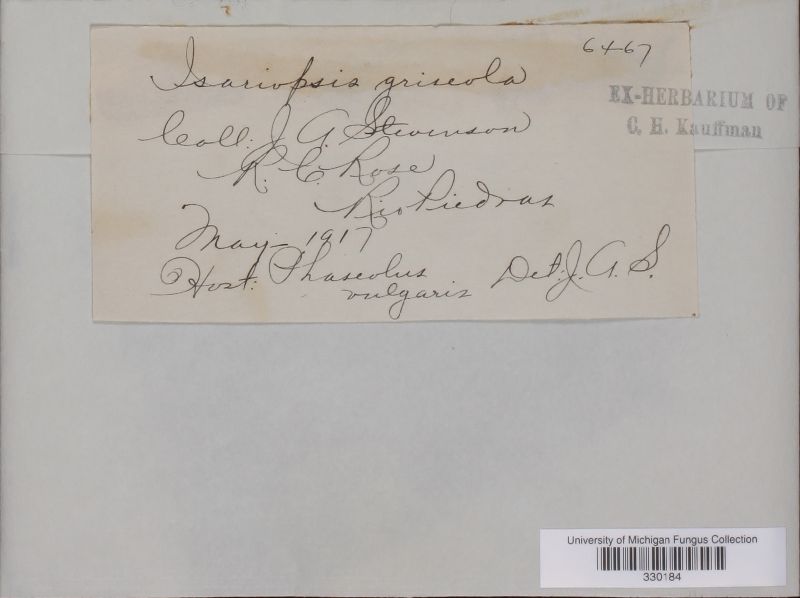 6467
Isariopsis griseola
EX-HERBARIUM OF
C. H. Kauffman
Coll: J. A. Stevenson
R. C. Rose
Rio Piedras
May - 1917
Host: Phaseolus
vulgaris Det: J. A. S.
University of Michigan Fungus Collection
330184